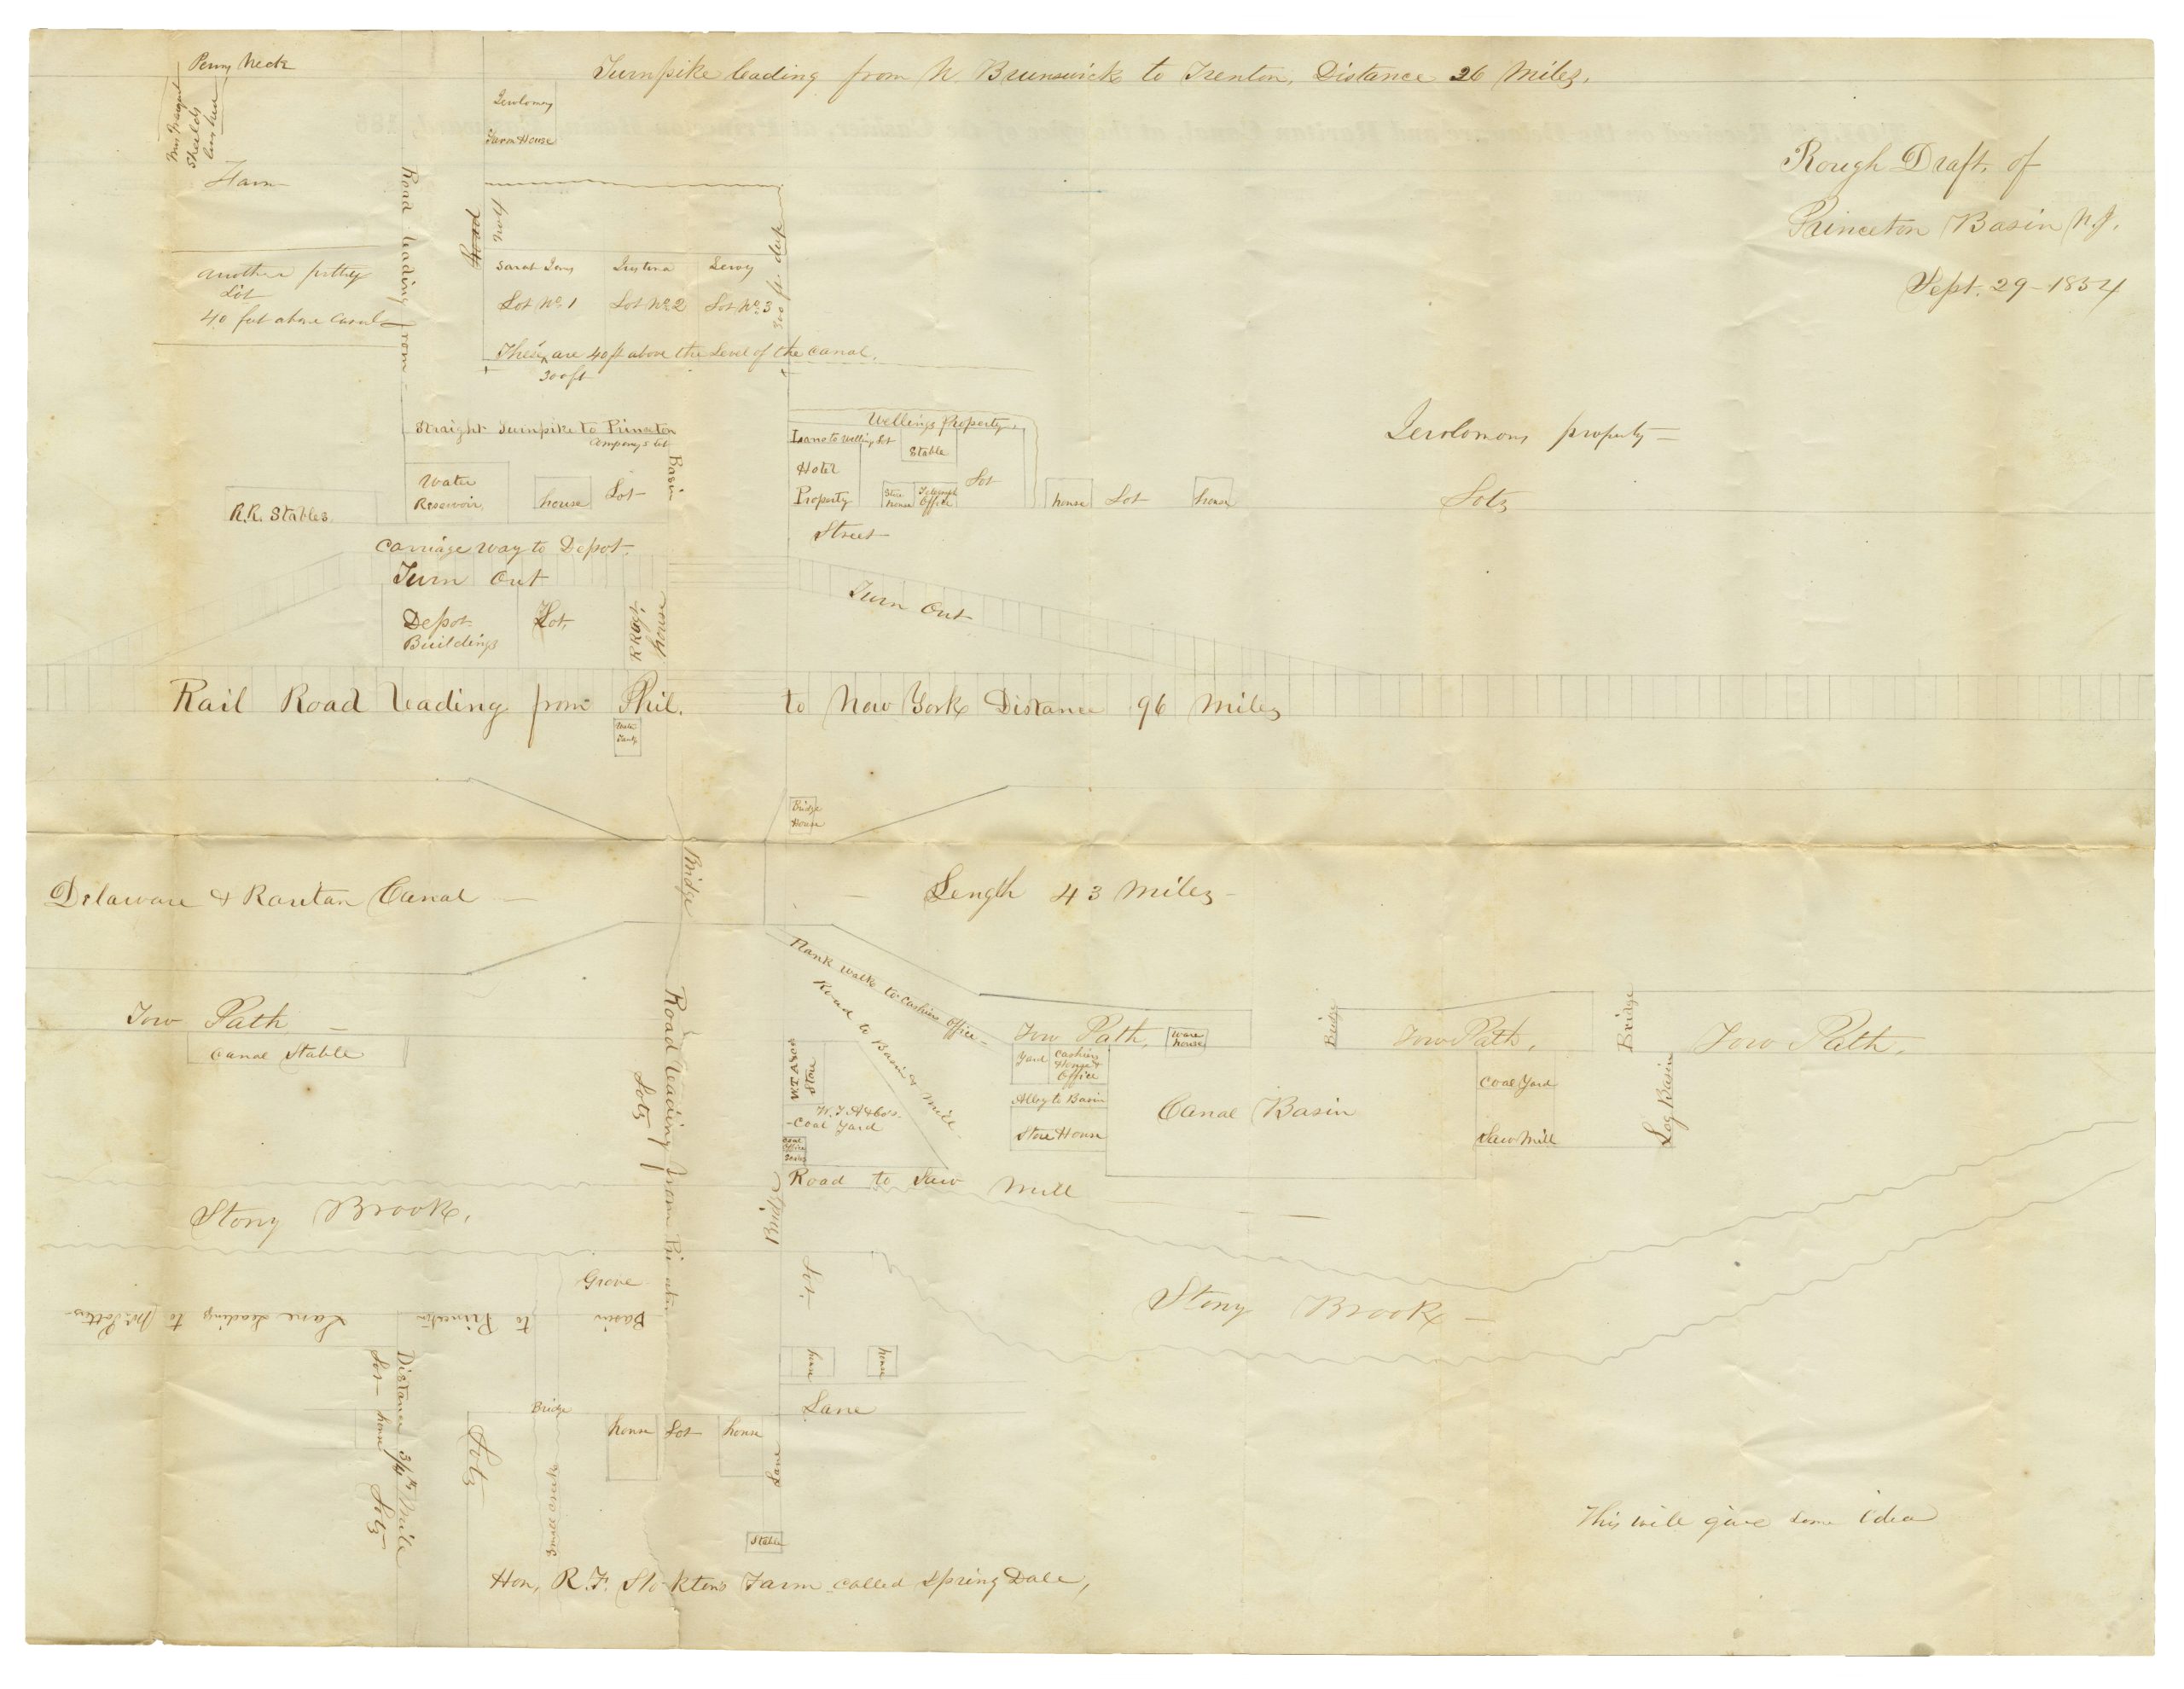 Penny Neck
Turnpike leading from N Brunswick to Trenton, Distance 26 Miles.
Farm House
Farm
Rough Draft. of
Princeton Basin N.J.
Sept. 29 - 1854
Road leading from
Road
300 ft. deep
another pretty
Lot
40 feet above Canal
Lot No. 1
Lot No. 2
Leroy
Lot No. 3
These are 40 ft above the Level of the Canal.
300 ft
Straight Turnpike to Princeton
Companys Lot
Basin
Water
Reservoir
house
Lot
R.R. Stables
Carriage way to Depot.
Turn Out
Depot
Buildings
Lot,
Wellings Property.
Lane to Welling Lot
Stable
Hotel
Property
Store
House
Telegraph
Office
Lot
house
Lot
house
Street
property
Lots
Turn Out
Rail Road leading from Phil. to New York Distance 96 Miles
Water
Tank
Bridge
House
Bridge
Delaware & Raritan Canal — Length 43 Miles —
Plank walk to Cashiers Office —
Road to Basin & Mill
Tow Path —
Canal Stable
Road leading from Princeton
Lots
Store
Coal Yard
Coal
Office
Tow Path,
Ware
house
Yard
Cashiers
House &
Office
Alley to Basin
Store House
Canal Basin
Bridge
Tow Path,
Bridge
Tow Path,
Coal Yard
Saw Mill
Log Basin
Road to Saw Mill
Bridge
Stony Brook,
Grove
Lane leading to Mr. Potters
Basin to Princeton
Distance 3/4th Mile
Lot
house
Lots
Lot
Stony Brook —
house
house
Lane
Bridge
Lots
Small creek
house
Lot
house
Lane
Stable
This will give some idea
Hon, R. F. Stocktons Farm called Spring Dale,